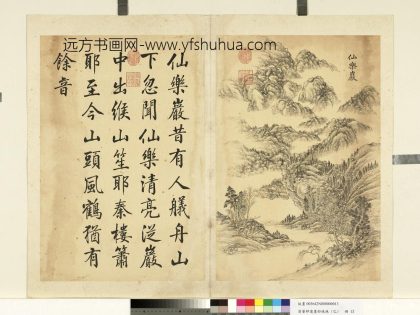 远方书画网-www.yfshuhua.com
仙樂巖
仙樂巖昔有人艤舟山
下忽聞仙樂清亮從巖
中出緱山笙耶秦樓簫
耶至今山頭風鶴猶有
餘音